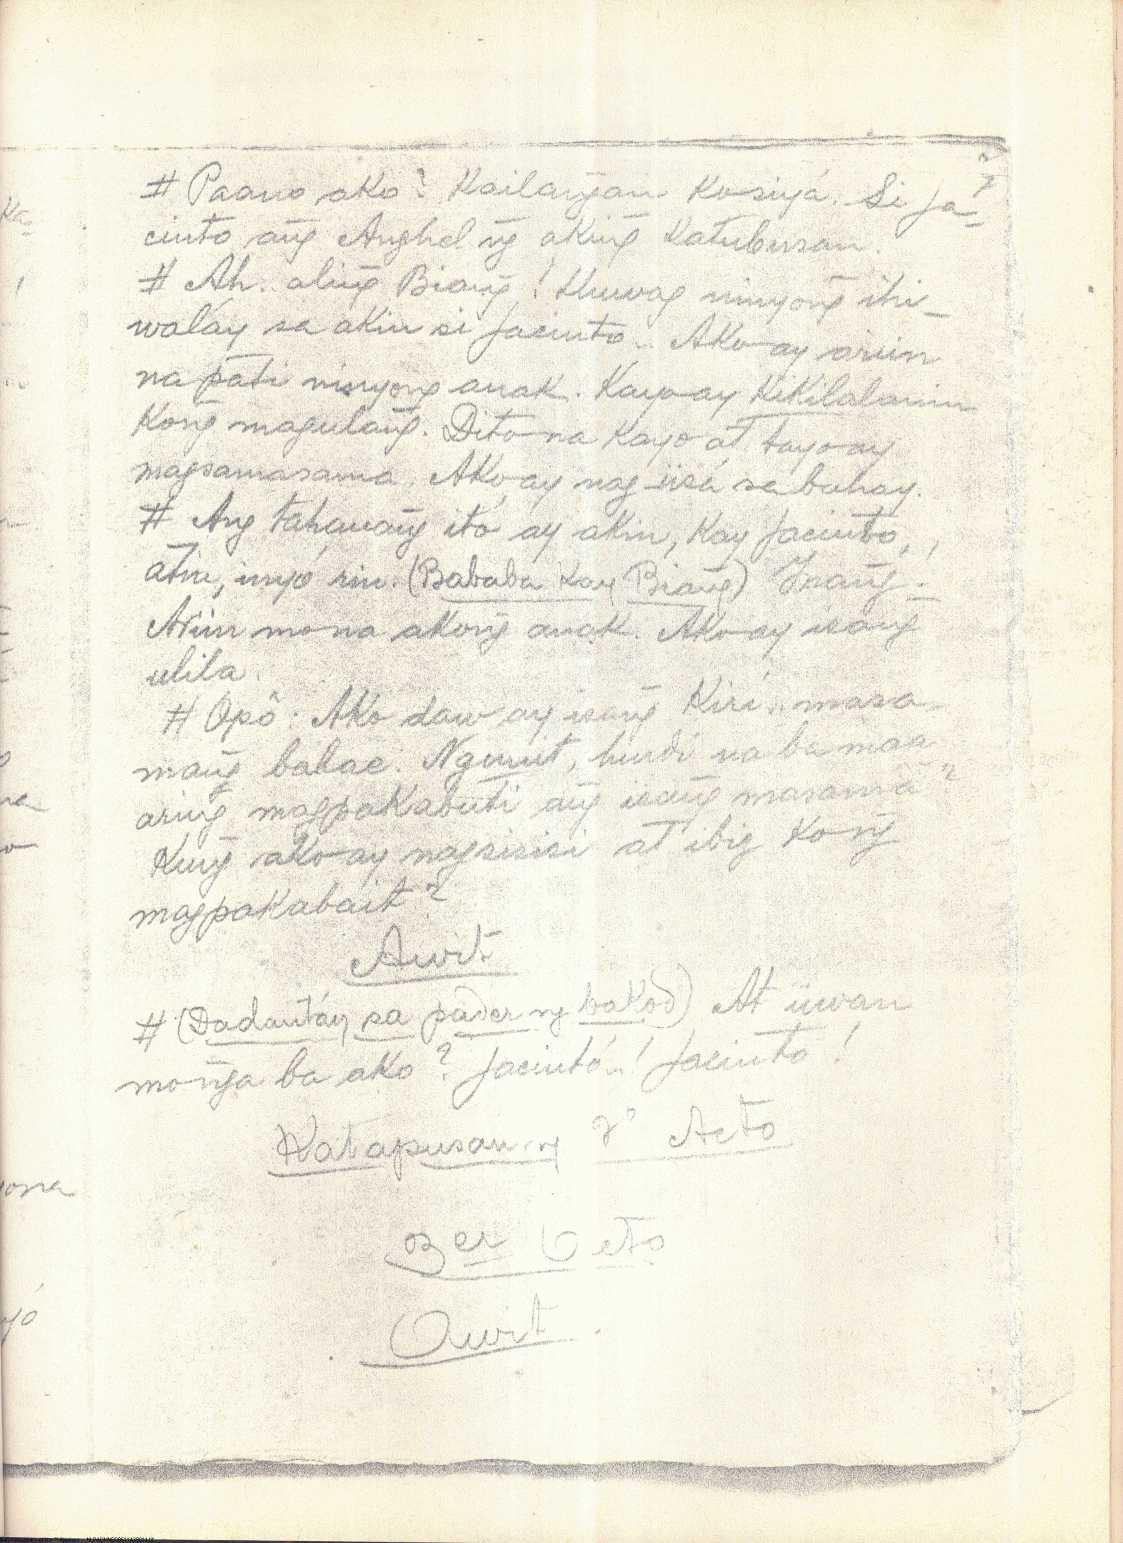 7
# Paano ako? Kailang̃an ko siyá. Si Ja-
cinto ang̃ Anghel ng̃ aking̃ Katubusan.
# Ah.. aling̃ Biang̃! Huwag ninyong̃ ihi-
waláy sa akin si Jacinto... Ako ay ariin
na pati ninyong anak. Kayo ay kikilalanin
kong̃ magulang̃. Dito na kayo at tayo ay
magsamasama. Ako ay nag-iisá sa buhay.
# Ang tahanang̃ itó ay akin, kay Jacinto,
atin, inyó rin. (Bababa kay Biang̃) Inang̃..
Ariin mo na akong̃ anak. Ako ay isang̃
ulila.
# Opô: Ako daw ay isang̃ Kirí... masa-
mang̃ babae. Ng̃unit, hindi na ba maa
aring̃ magpakabuti ang̃ isang̃ masama?
Kung̃ ako ay nagsisisi at ibig ko ng̃
magpakabait?
Awit
# (Dadantáy sa pader ng bakod) At iiwan
mo ng̃a ba ako? Jacintó..! Jacinto!
Katapusan ng 2º Acto
3er Acto
Awit.